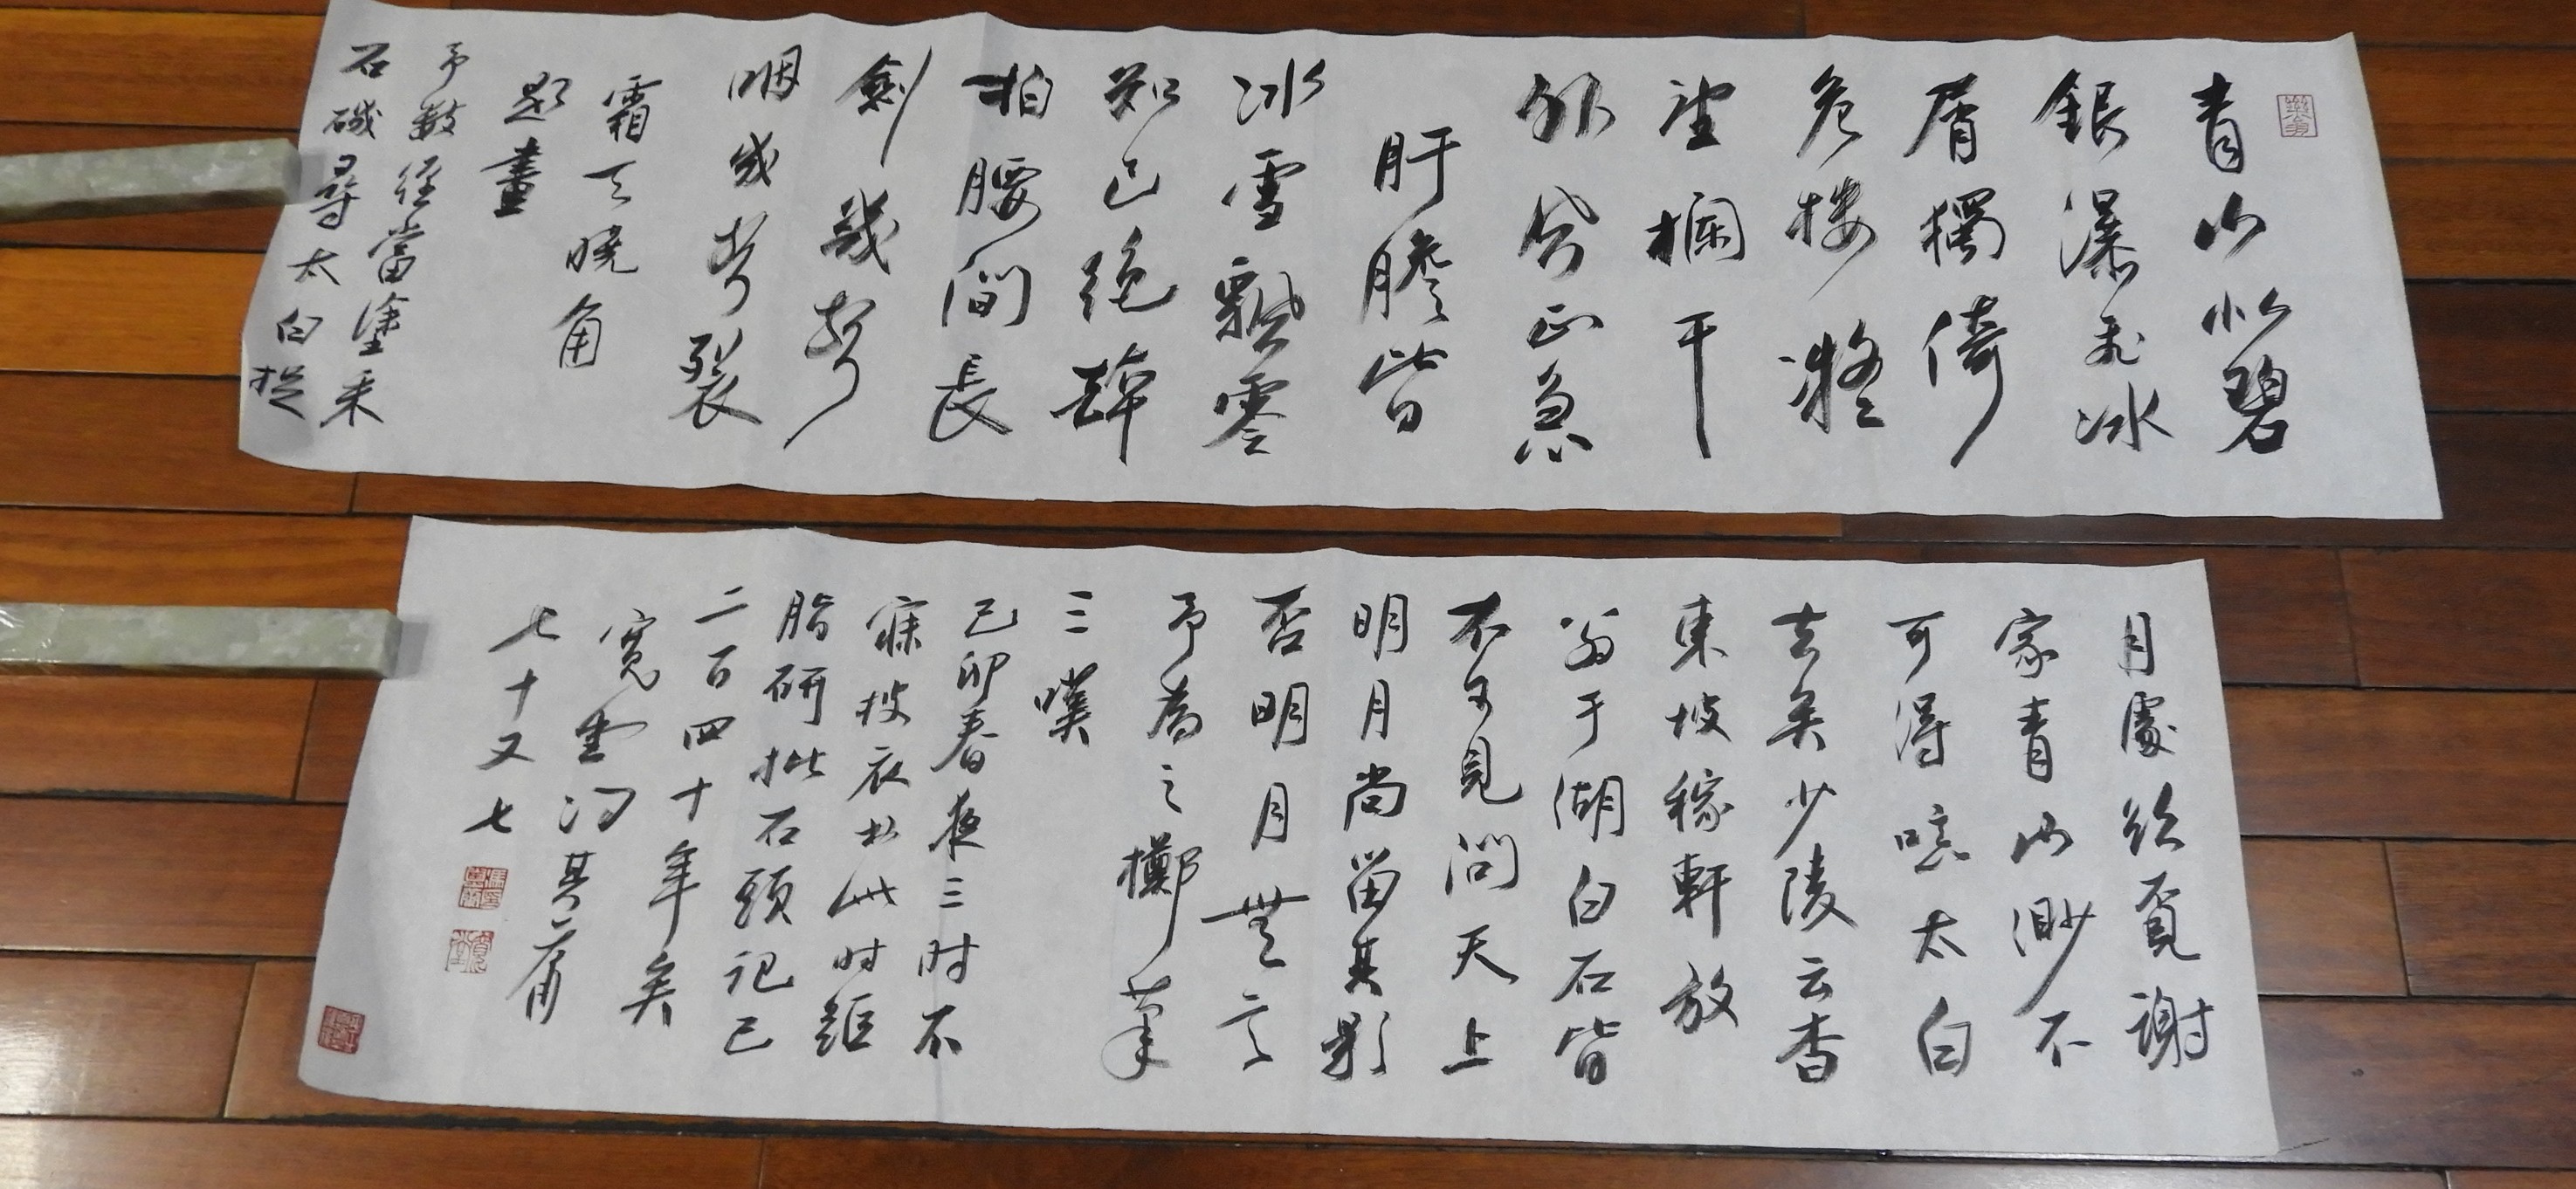 青山似碧
銀瀑飛冰
屑獨倚
危楼凝
望欄干
外分正急
肝膽皆
冰雪飄零
知已絶韓
拍腰間長
劍幾聲
咽或聲裂
霜天曉角
題畫
予數經當塗采
石磯尋太白捉
月處欲覓謝
家青山渺不
可得噫太白
去矣少陵云杳
東坡稼軒放
翁于湖白石皆
不可見問天上
明月尚留其影
否明月無言
予為之擲筆
三嘆
己卯春夜三时不
寐披衣书此时距
脂研批石頭記已
二百四十年矣
寬堂馮其庸
七十又七